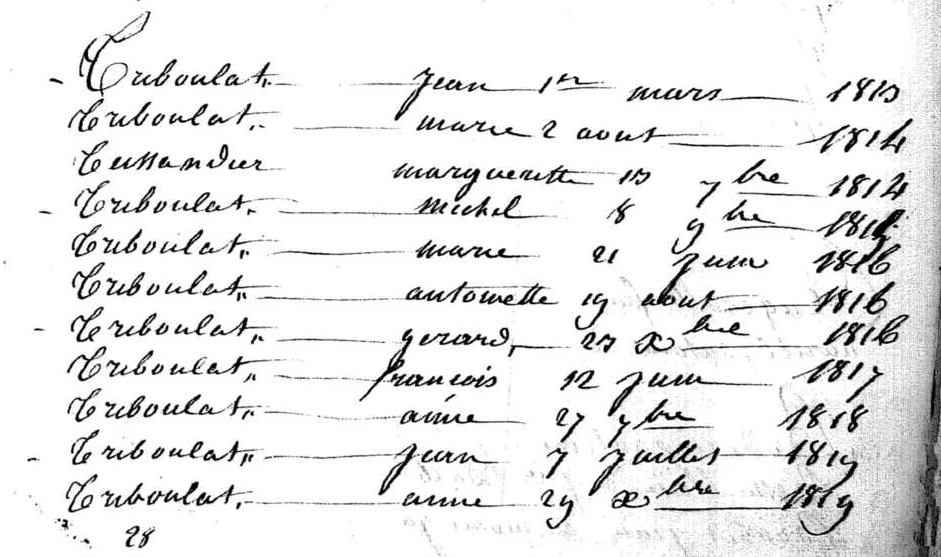 Triboulat Jean 1er mars 1813
Triboulat marie 2 aout 1814
Teissandier margueritte 13 7bre 1814
Triboulat michel 8 9bre
Triboulat marie 21 juin 1816
Triboulat antoinette 19 aout 1816
Triboulat gerard 23 Xbre 1816
Triboulat francois 12 juin 1817
Triboulat anne 27 7bre 1818
Triboulat jean 7 juillet 1819
Triboulat anne 29 Xbre 1819
28